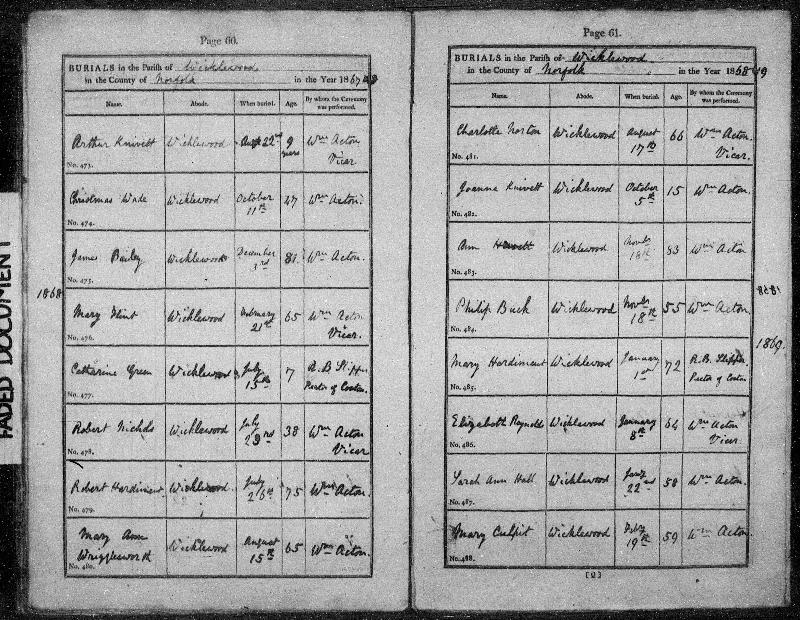 FADED DOCUMENT
1868
Page 60.
BURIALS in the Parish of Wicklewood
in the County of Norfolk in the Year 1867
Name. Abode. When buried. Age. By whom the Ceremony was performed.
Arthur Knivett Wicklewood 22nd 9 years Wm Acton Vicar
No. 473.
Christmas Wade Wicklewood October 11th 47 Wm Acton.
No. 474.
James Bailey Wicklewood December 3rd 81. Wm Acton.
No. 475.
Mary Flint Wicklewood February 21st 65 Wm Acton Vicar.
No. 476.
Catharine Green Wicklewood July 7 R. B. Rector of Coston.
No. 477.
Robert Nichols Wicklewood July 23rd 38 Wm Acton Vicar
No. 478.
Robert Hardiment Wicklewood July 26th 75 Wm Acton.
No. 479.
Mary Ann Wrigglesworth Wicklewood August 15th 65 Wm Acton.
No. 480.
Page 61.
BURIALS in the Parish of Wicklewood
in the County of Norfolk in the Year 1868
Name. Abode. When buried. Age. By whom the Ceremony was performed.
Charlotte Norton Wicklewood August 17th 66 Wm Acton. Vicar.
No. 481.
Joanna Knivett Wicklewood October 5th 15 Wm Acton.
No. 482.
Ann Wicklewood Novbr 18th 83 Wm Acton
No. 483.
Philip Buck Wicklewood Novbr 18th 55 Wm Acton.
No. 484.
Mary Hardiment Wicklewood January 1st 72 R. B. Rector of Coston
No. 485.
Elizabeth Reynolds Wicklewood January 8th 64 Wm Acton Vicar
No. 486.
Sarah Ann Hall Wicklewood 22nd 58 Wm Acton.
No. 487.
Mary Culpit Wicklewood 19th 59 Wm Acton.
No. 488.
[2]
1869.